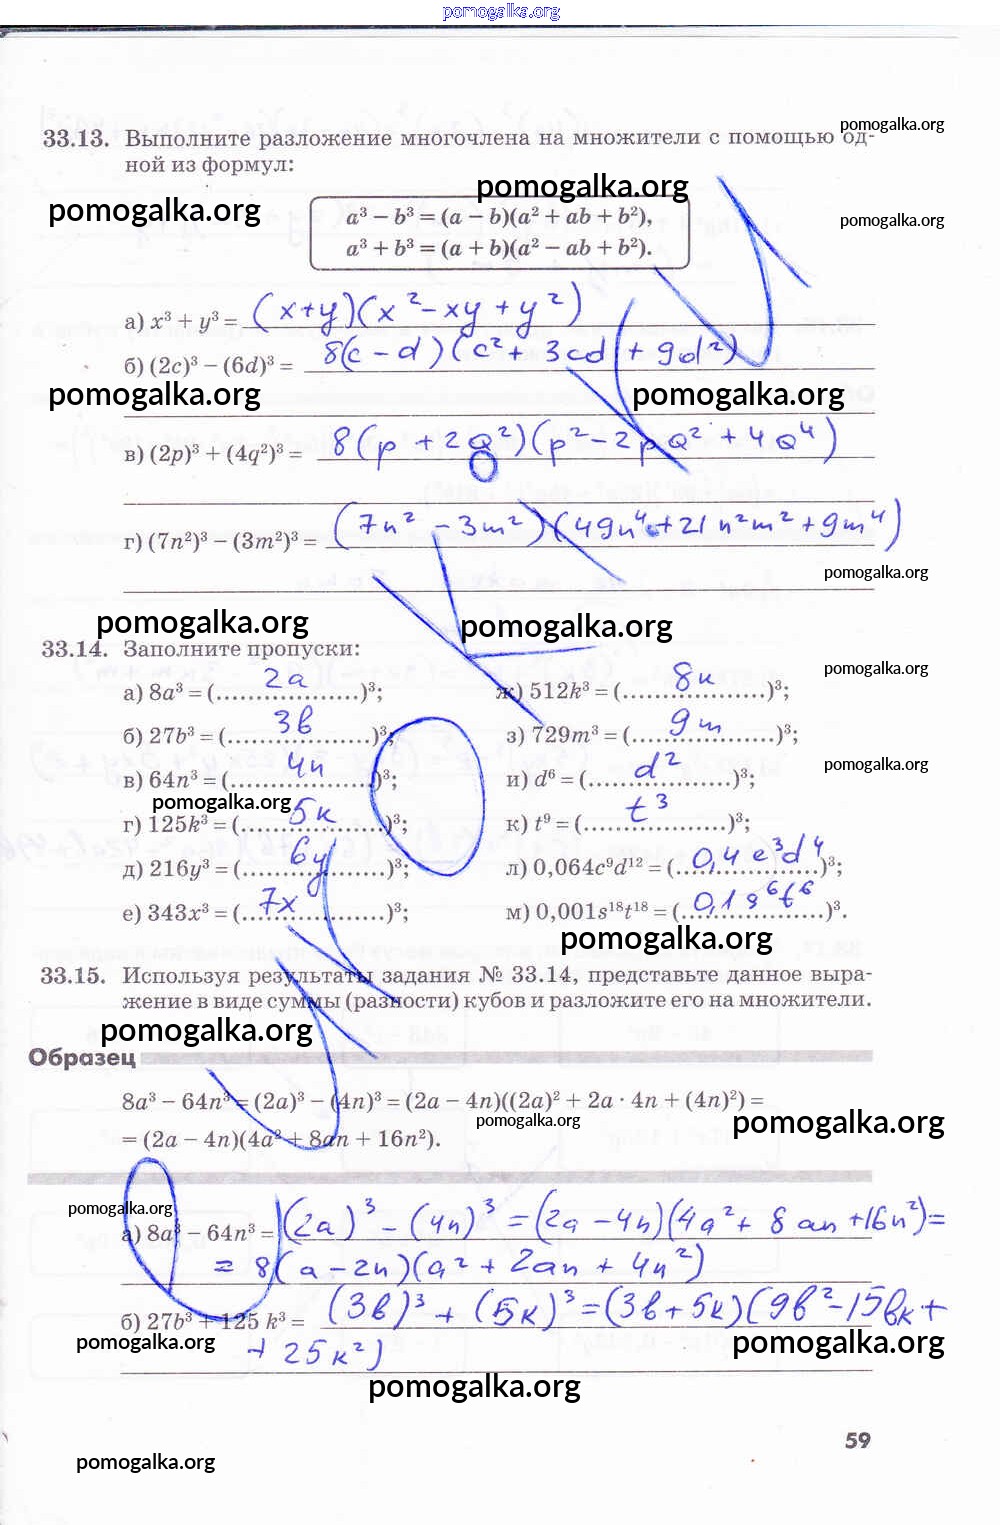 pomogalka.org
33.13. Выполните разложение многочлена на множители с помощью од-
pomogalka.org
ной из формул:
pomogalka.org
pomogalka.org
a³ − b³ = (a − b)(a² + ab + b²),
pomogalka.org
a³ + b³ = (a + b)(a² − ab + b²).
а) x³ + y³ = (x+y)(x² − xy + y²)
б) (2c)³ − (6d)³ = 8(c − d)(c² + 3cd + 9d²)
pomogalka.org
pomogalka.org
в) (2p)³ + (4q²)³ = 8(p + 2q²)(p² − 2pq² + 4q⁴)
г) (7n²)³ − (3m²)³ = (7n² − 3m²)(49n⁴ + 21n²m² + 9m⁴)
pomogalka.org
pomogalka.org
pomogalka.org
33.14. Заполните пропуски:
pomogalka.org
а) 8a³ = (2a)³;
ж) 512k³ = (8k)³;
б) 27b³ = (3b)³;
з) 729m³ = (9m)³;
pomogalka.org
в) 64n³ = (4n)³;
и) d⁶ = (d²)³;
pomogalka.org
г) 125k³ = (5k)³;
к) t⁹ = (t³)³;
д) 216y³ = (6y)³;
л) 0,064c⁹d¹² = (0,4c³d⁴)³;
е) 343x³ = (7x)³;
м) 0,001s¹⁸t¹⁸ = (0,1s⁶t⁶)³.
pomogalka.org
33.15. Используя результаты задания № 33.14, представьте данное выра-
жение в виде суммы (разности) кубов и разложите его на множители.
pomogalka.org
Образец
8a³ − 64n³ = (2a)³ − (4n)³ = (2a − 4n)((2a)² + 2a · 4n + (4n)²) =
pomogalka.org
pomogalka.org
= (2a − 4n)(4a² + 8an + 16n²).
pomogalka.org
а) 8a³ − 64n³ = (2a)³ − (4n)³ = (2a − 4n)(4a² + 8an + 16n²) =
= 8(a − 2n)(a² + 2an + 4n²)
б) 27b³ + 125 k³ = (3b)³ + (5k)³ = (3b + 5k)(9b² − 15bk +
pomogalka.org
pomogalka.org
+ 25k²)
pomogalka.org
59
pomogalka.org